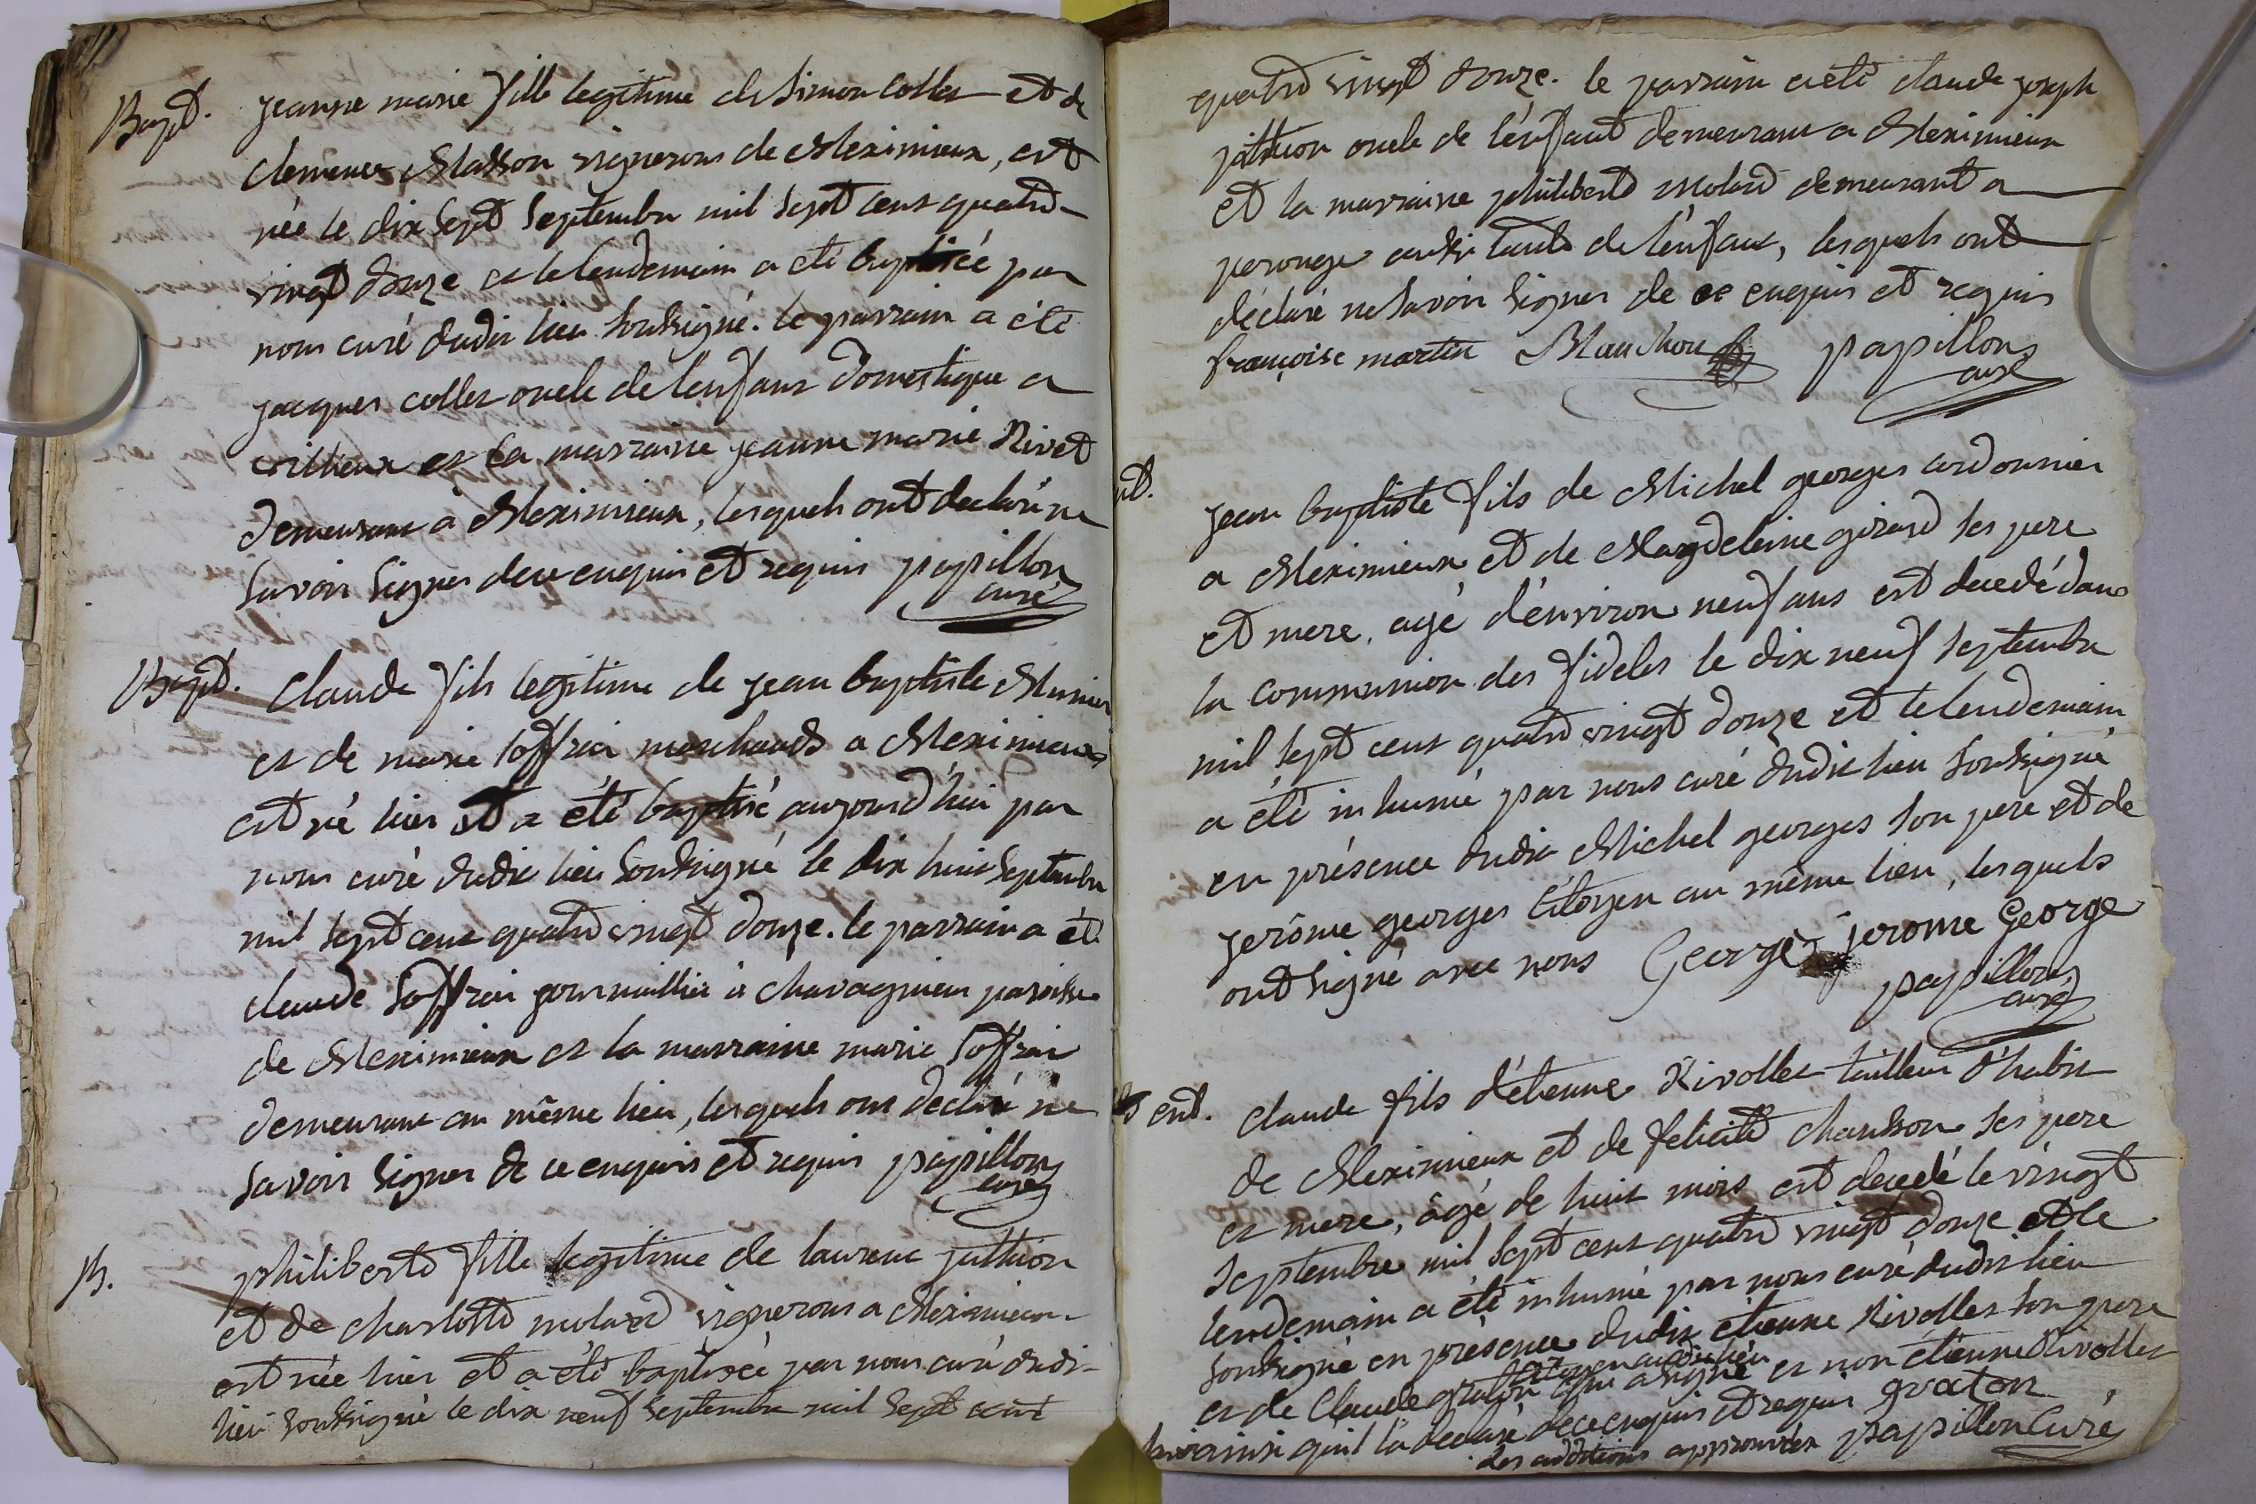 Bapt. jeanne marie fille legitime de Simon Collet et de
clemence Masson vignerons de Meximieux, est
née le dix sept Septembre mil sept cent quatre
vingt douze et le lendemain a eté baptisée par
nous curé dudit lieu soussigné. le parrain a été
jacques collet oncle de l'enfant domestique a
crillieux et la marraine jeanne marie Rivet
demeurant à Meximieux, lesquels ont declaré ne
Savoir Signer de ce enquis et requis papillon
curé
Bapt. Claude fils legitime de jean baptiste Munier
et de marie soffrai marchands a Meximieux
est né hier et a été baptisé aujourd'hui par
nous curé dudit lieu soussigné le dix huit septembre
mil sept cent quatre vingt douze. le parrain a été
claude Soffrai journaillier à chavagnieu paroisse
de Meximieux et la marraine marie Soffrai
demeurant au même lieu, lesquels ont declaré ne
Savoir Signer de ce enquis et requis papillon
curé
B. philiberte fille legitime de laurent juttion
et de charlotte molard vignerons a Meximieux
est née hier et a été baptisée par nous curé dudi
lieu soussigné le dix neuf Septembre mil Sept cent
quatre vingt douze. le parrain a été claude joseph
jutttion oncle de l'énfant demeurant a Meximieux
et la marraine philiberte molard demeurant a
perouge aussi tante de l'énfant, lesquels ont
déclaré ne savoir signer de ce enquis et requis
françoise martin Blanchon papillon
curé
nt. jean baptiste fils de Michel georges cordonnier
a Meximieux et de Magdeleine girard ses pere
et mere, agé d'énviron neuf ans est decedé dans
la communion des fideles le dix neuf septembre
mil sept cent quatre vingt douze et le lendemain
a été inhumé par nous curé dudit lieu soussigné
en présence dudit Michel georges son pere et de
jerôme georges Citoyen au même lieu, lesquels
ont signé avec nous George jerome George
papillon
curé
ent. claude fils d'étienne Rivollet tailleur d'habit
de Meximieux et de felicité chausson ses pere
et mere, âgé de huit mois est decedé le vingt
Septembre mil sept cent quatre vingt douze et le
lendemain a été inhumé par nous curé dudit lieu
soussigné en présence dudit étienne Rivollet son pere
citoyen audit lieu
et de Claude graton qui a signé et non étienne Rivollet
ainsi qu'il l'a declaré de ce enquis et requis graton
les additions approuvées papillon Curé